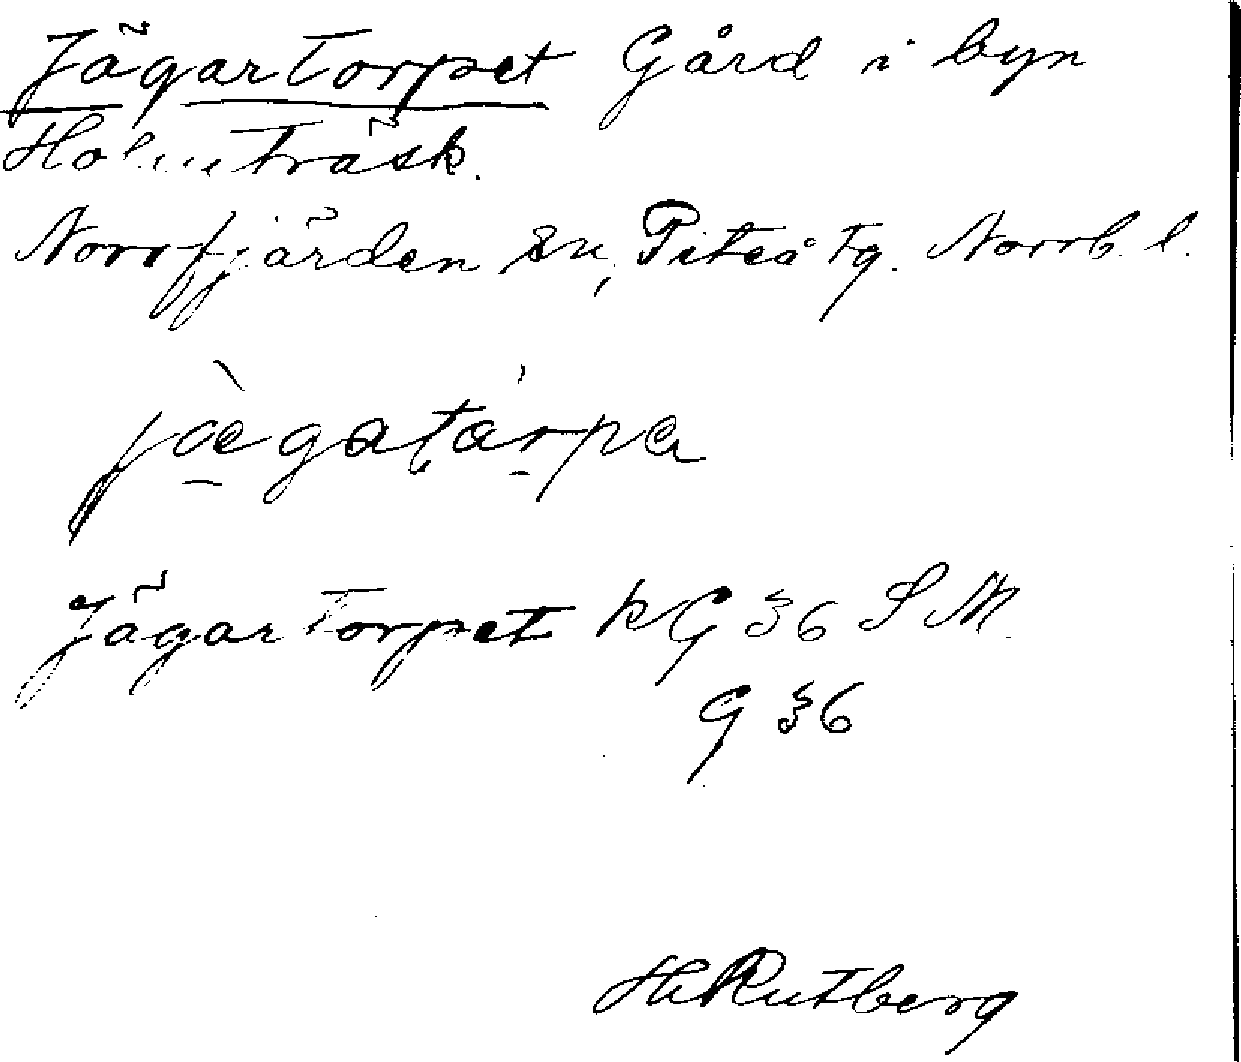 Jägartorpet Gård i byn
Holmträsk.
Norrfjärden sn, Piteå tg. Norrb. l.
jægatårpa
Jägartorpet kG 36 SM.
G 36
HRutberg